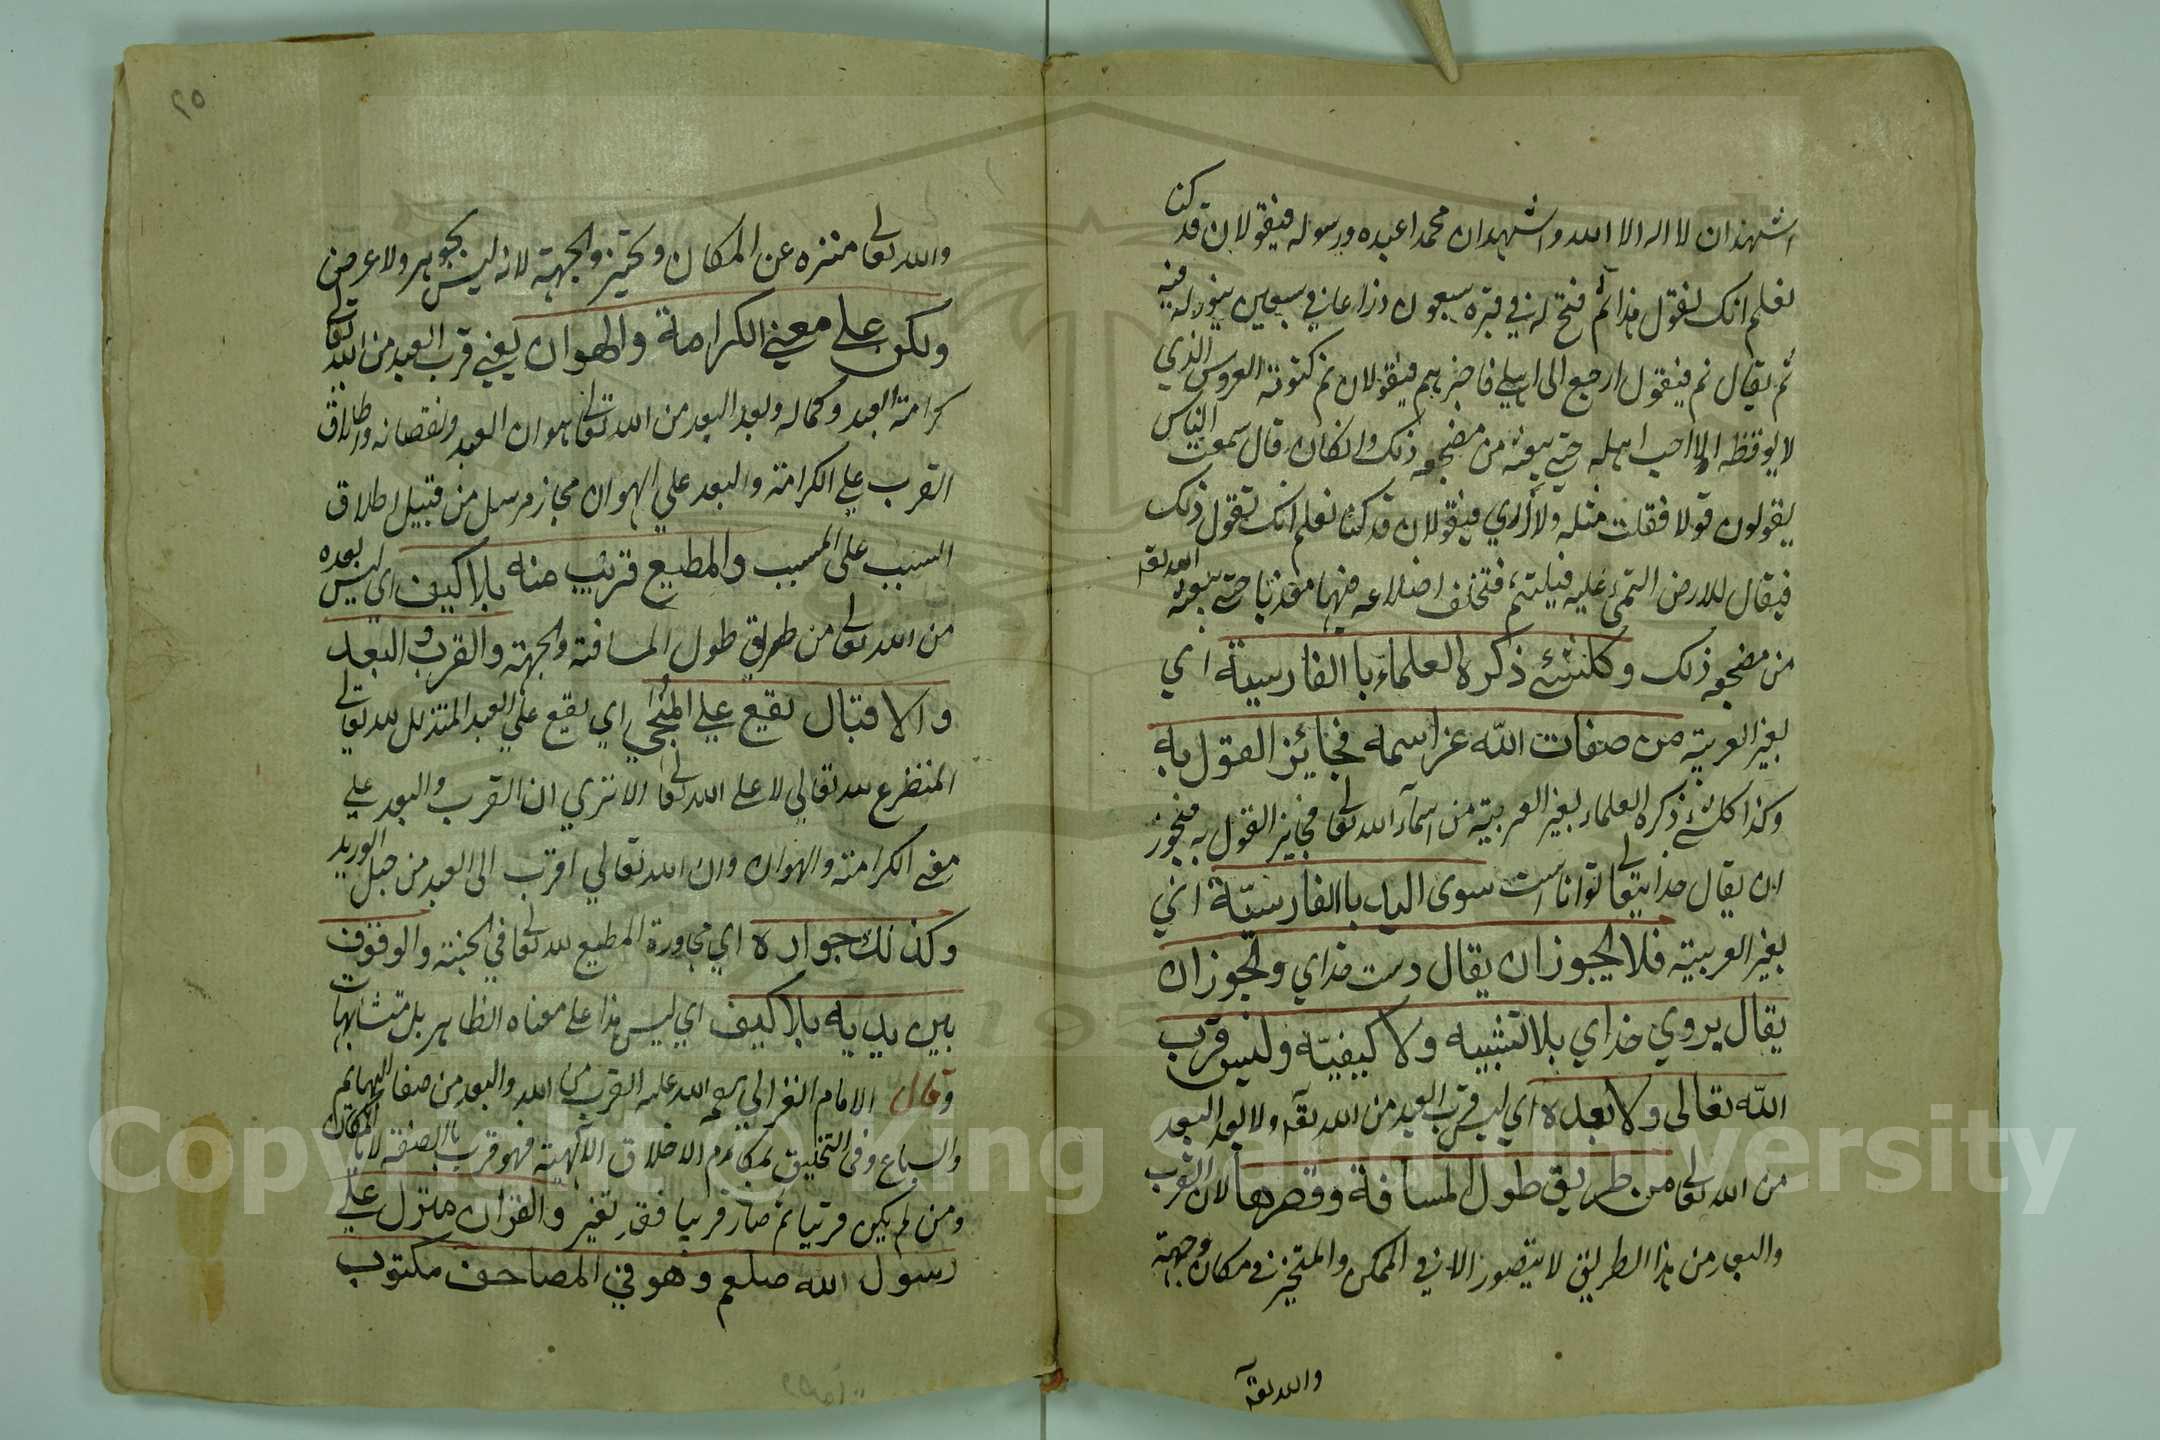 اشهد ان لا اله الا الله واشهد ان محمدا عبده ورسوله فيقولان قد كنا
نعلم انك لتقول هذا ثم فتح له في قبره سبعون ذراعا في سبعين ينور له فيه
ثم يقال نم فيقول ارجع الى اهلي فاخبرهم فيقولان نم كنومة العروس الذي
لا يوقظه الا احب اهله حتى يبعثه من مضجعه ذلك وان كان قال سمعت الناس
يقولون قولا فقلت مثله ولا ادري فيقولان قد كنا نعلم انك تقول ذلك
فيقال للارض التئمي عليه فيلتئم فتختلف اضلاعه فيها معذبا حتى يبعثه الله تعه
من مضجعه ذلك وكلشئ ذكره العلماء با الفارسية اي
بغير العربية من صفات الله عز اسمه فجائز القول به
وكذا كلشئ ذكره العلماء بغير العربية من اسماء الله تعالى فجايز القول به فيجوز
ان يقال خدايتعالى توانا است سوى اليد با الفارسيّة اي
بغير العربية فلا يجوز ان يقال دست خداي ويجوز ان
يقال بروي خداي بلا تشبيه ولا كيفيّة وليس قرب
الله تعالى ولا بعده اي ليس قرب العبد من الله تعه ولا بعد العبد
من الله تعالى من طريق طول المسافة وقصرها لان القرب
والبعد من هذا الطريق لا يتصور الا في الممكن والمتحيز في مكان وجهة
والله تعه
٢٥
والله تعالى منزه عن المكان وتحيز والجهة لانه ليس بجوهر ولا عرض
ولكن على معنى الكرامة والهوان يعني قرب العبد من الله تعالى
كرامة العبد وكماله وبعد العبد من الله تعالى هوان العبد ونقصانه واطلاق
القرب على الكرامة والبعد على الهوان مجاز مرسل من قبيل اطلاق
السبب على المسبب والمطيع قريب منه بلا كيف اى ليس بعده
من الله تعالى من طريق طول المسافة والجهة والقرب و البعد
والاقبال يقع على المناجي اي يقع على العبد المتذلل لله تعالى
المتضرع لله تعالي لا على الله تعالى الا تري ان القرب والبعد علي
معنى الكرامة والهوان وان الله تعالي اقرب الى العبد من حبل الوريد
وكذلك جواره اي مجاورة المطيع لله تعالى في الجنة والوقوف
بين يديه بلا كيف اي ليس هذا على معناه الظاهر بل متشابهات
وقال الامام الغزالي رحمة الله عليه القرب من الله والبعد من صفات البهائم
والسباع وفى التخليق بمكارم الاخلاق الالهية فهو قرب با الصفة لا با المكان
ومن لم يكن قريبا ثم صار قريبا فقد تغير والقران منزل على
رسول الله صلعم وهو في المصاحف مكتوب